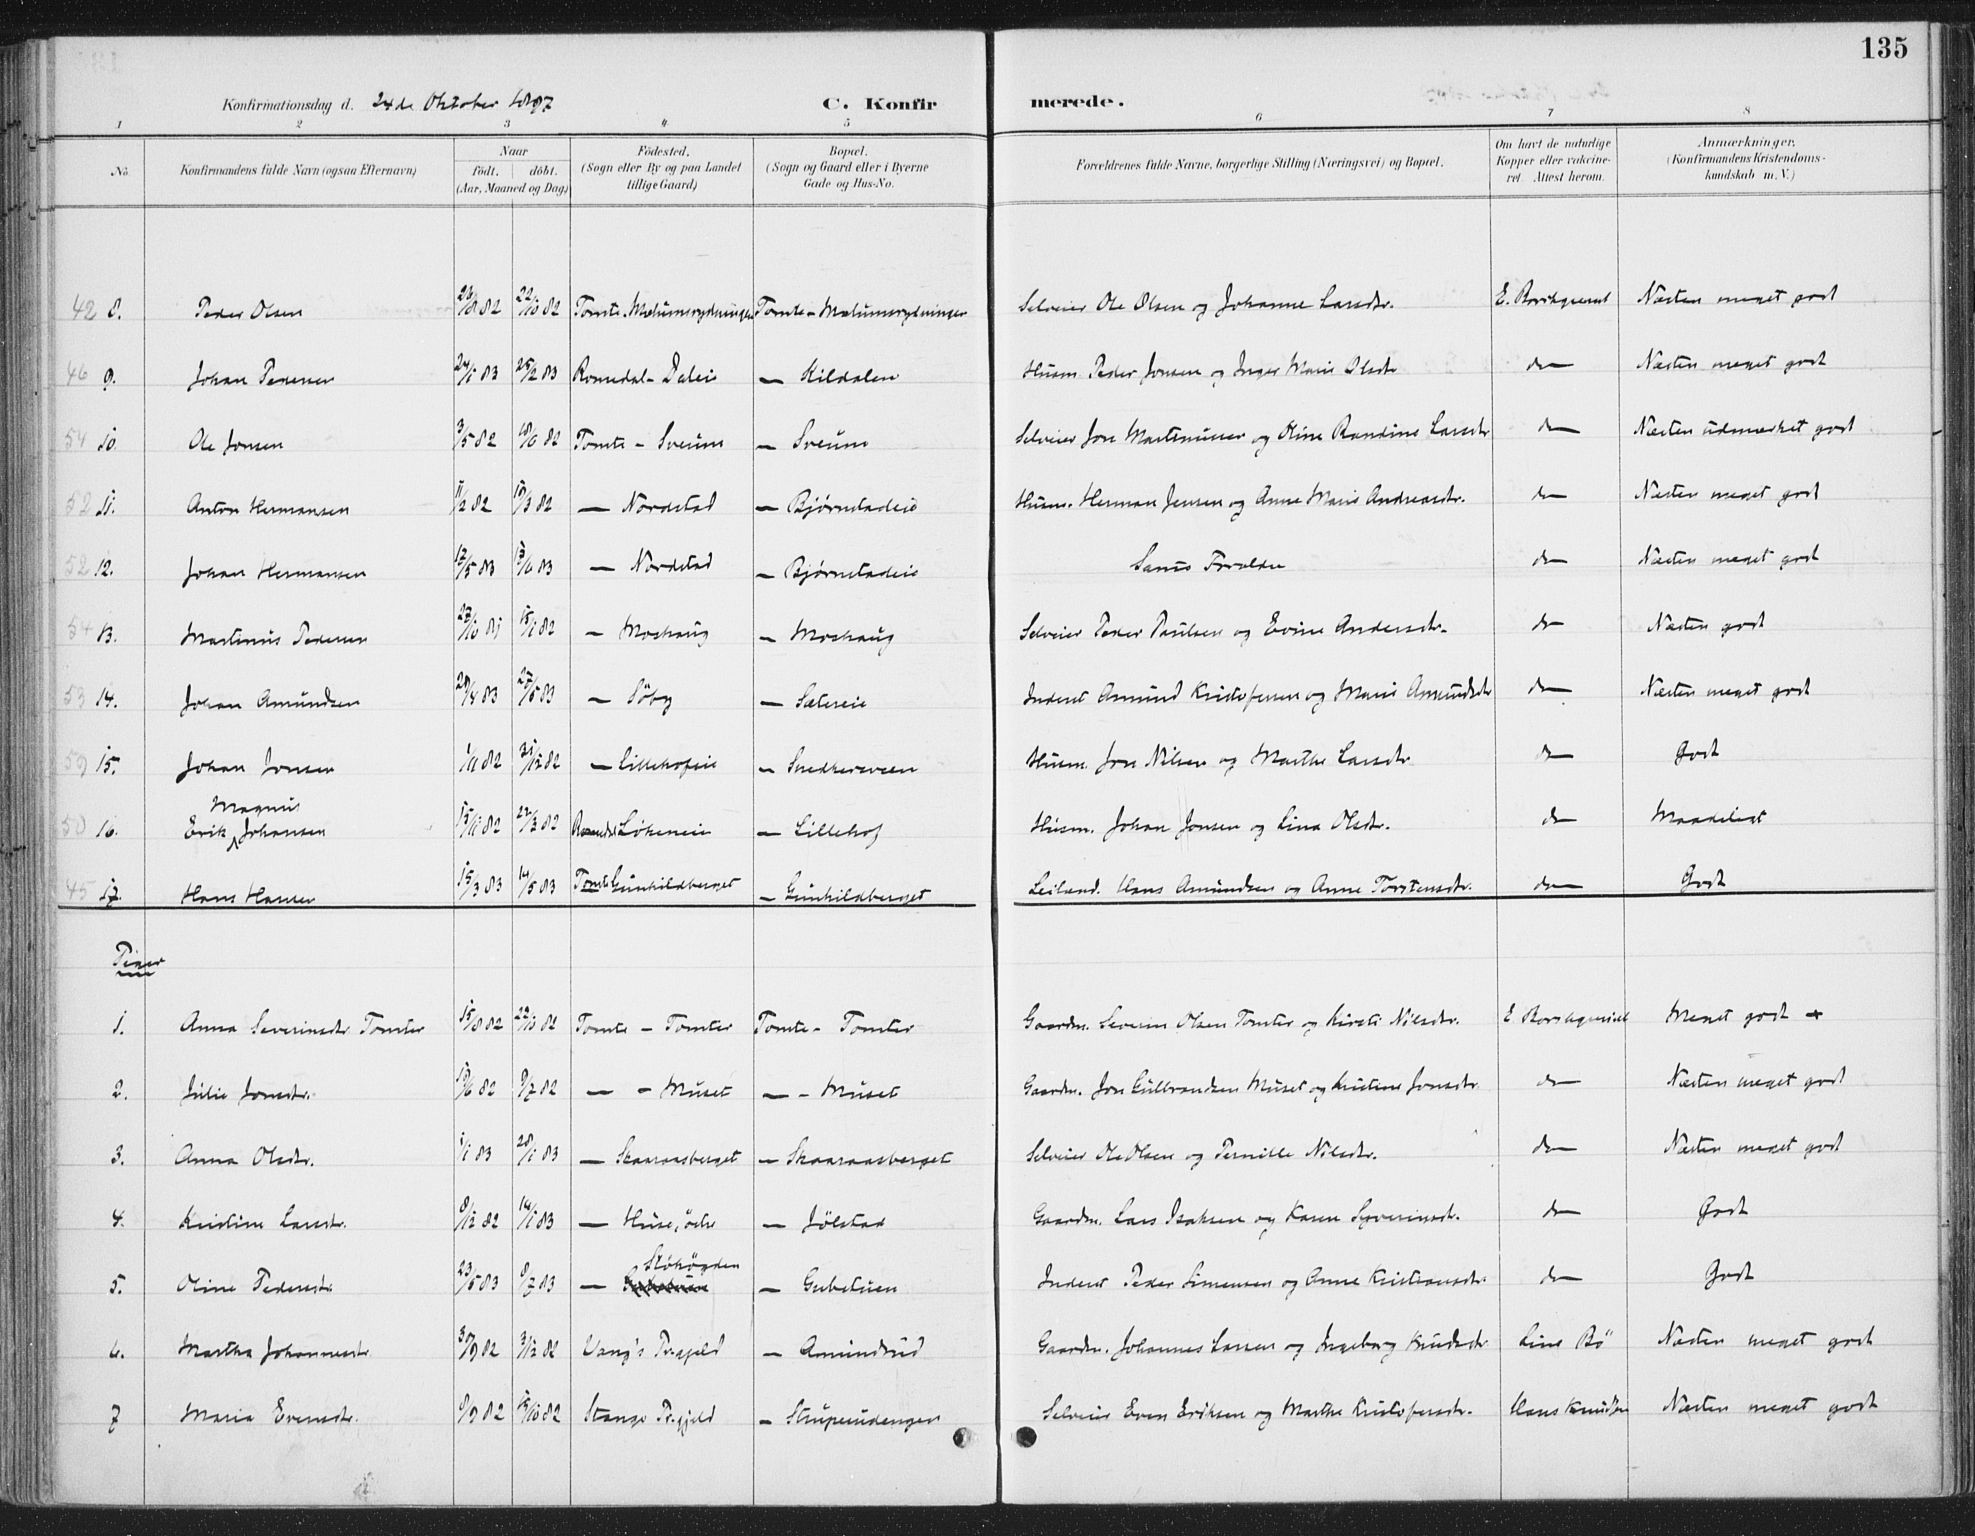 135
Konfirmationsdag d. 24de Oktober 1897 C. Konfirmerede.
1 2 3 4 5 6 7 8
No. Konfirmandens fulde Navn (ogsaa Efternavn) Naar födt. döbt. (Aar, Maaned og Dag) Födested. (Sogn eller By og paa Landet tillige Gaard) Bopæl. (Sogn og Gaard eller i Byerne Gade og Hus-No. Forældrenes fulde Navne, borgerlige Stilling (Næringsvei) og Bopæl. Om havt de naturlige Kopper eller vakcineret. Attest herom. Anmærkninger. (Konfirmandens Kristendomskundskab m. V.)
42 8. Peder Olsen 26/8 82 22/10 82 Tomte - Mælumsrydningen Tomte - Mælumsrydningen Selveier Ole Olsen og Johanne Larsdtr. Næsten meget godt
46 9. Johan Pedersen 24/1 83 25/2 83 Romedal - Daleie — Kildalen Husm. Peder Jonsen og Inger Marie Olsdtr do — Næsten meget godt
54 10. Ole Jonsen 3/5 82 18/6 82 Tomte - Sveum — Sveum Selveier Jon Martinussen og Oline Randine Larsdtr do — Næsten udmærket godt
52 11. Anton Hermansen 11/2 82 19/3 82 — Nordstad — Bjørnstadeie Husm. Herman Jensen og Anne Marie Andreasdtr. do — Næsten meget godt
52 12. Johan Hermansen 12/5 83 — Nordstad — Bjørnstadeie Samme Forældre do — Næsten meget godt
54 13. Martinus Pedersen 23/10 81 15/1 82 — Moshaug — Moshaug Selveier Peder Paulsen og Evine Andersdtr. do — Næsten godt
53 14. Johan Amundsen 29/4 83 27/5 83 — Söby — Sætereie Inderst Amund Kristofersen og Marie Amundsdtr do — Næsten meget godt
59 15. Johan Jonsen 1/11 82 31/12 82 — Lillehofeie — Snedkersveen Husm. Jon Nilsen og Marthe Larsdtr do — Godt
50 16. Erik Magnus Johansen 22/3 82 Romedal Løkeneie — Lillehof Husm. Johan Jonsen og Lina Olsdtr. do — Maadeligt
45 17. Hans Hansen 15/3 83 14/5 83 Tomte Gunhildberget — Gunhildberget Leilænd. Hans Amundsen og Anne Torstensdtr. do — Godt
Piger
1. Anna Severinsdtr Tomter 15/8 82 22/10 82 Tomte - Tomter Tomte - Tomter Gaardm. Severin Olsen Tomter og Kirsti Nilsdtr. Meget godt +
2. Julie Jonsdtr. 9/7 82 — - Muset — - Muset Gaardm. Jon Gulbrandsen Muset og Kristine Jonsdtr do — Næsten meget godt
3. Anna Olsdtr. 1/1 83 28/1 83 — Skaaraasberget — Skaaraasberget Selveier Ole Olsen og Pernille Nilsdtr. do — Næsten meget godt
4. Kristine Larsdtr. 8/12 82 14/1 83 — Huse, ödre — Jølstad Gaardm. Lars Isaksen og Karen Syverinsdtr. do — Godt
5. Oline Pedersdtr 23/5 83 8/7 83 — Stöhögden — Gubetuen Inderst Peder Simensen og Anne Kristiansdtr. do — Godt
6. Martha Johannesdtr 30/9 82 3/12 82 Vang's Pr.gjeld — Amundrud Gaardm. Johannes Larsen og Ingeborg Knudsdtr Line Bö Næsten meget godt
7 Maria Evensdtr. 9/9 82 15/10 82 Stange Pr.gjeld — Strupenudengen Selveier Even Eriksen og Marthe Kristofersdtr. Hans Knudsen Næsten meget godt